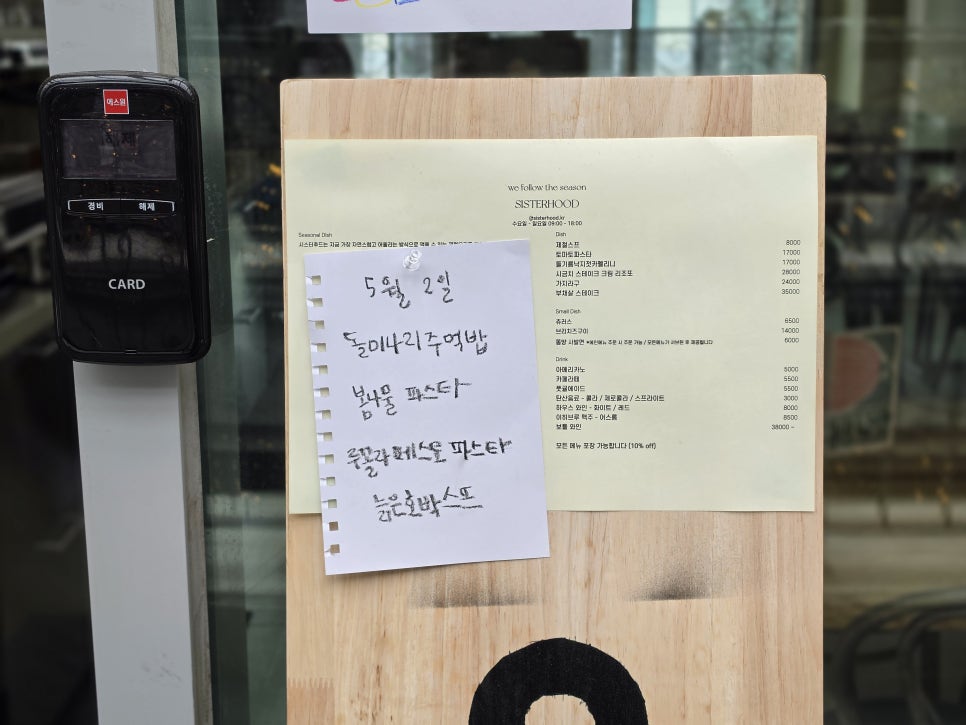 에스원
경비 해제
CARD
we follow the season
SISTERHOOD
@sisterhood.kr
수요일 - 일요일 09:00 - 18:00
Seasonal Dish
시스터후드는 지금 가장 자연스럽고 어울리는 방식으로 먹을 수 있는
5월 2일
돌미나리주먹밥
봄나물 파스타
루꼴라페스토 파스타
늙은호박스프
Dish
제철스프 8000
토마토파스타 17000
들기름낙지젓카펠리니 17000
시금치 스테이크 크림 리조또 28000
가지라구 24000
부채살 스테이크 35000
Small Dish
츄러스 6500
브리치즈구이 14000
똠양 사발면 *메인메뉴 주문 시 주문 가능 / 모든메뉴가 서브된 후 제공됩니다 6000
Drink
아메리카노 5000
카페라떼 5500
풋귤에이드 5500
탄산음료 - 콜라 / 제로콜라 / 스프라이트 3000
하우스 와인 - 화이트 / 레드 8000
이하브루 맥주 - 어스름 8500
보틀 와인 38000 ~
모든 메뉴 포장 가능합니다 (10% off)